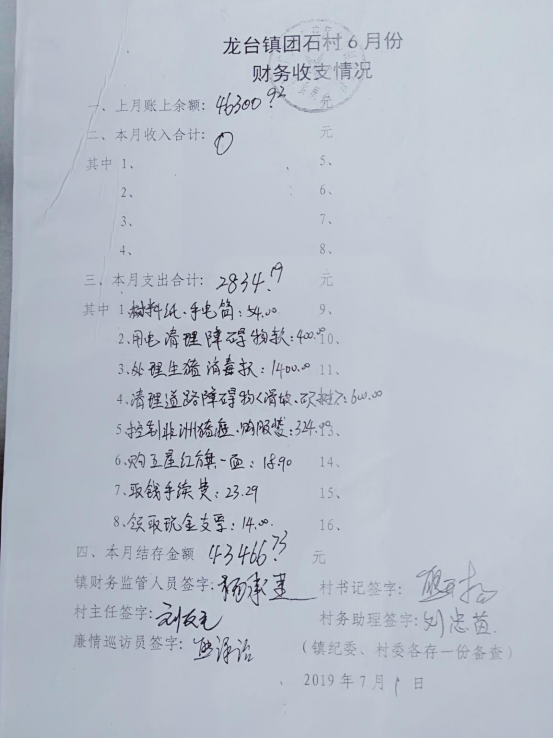 龙台镇团石村6月份
财务收支情况
一、上月账上余额: 46300.92 元
二、本月收入合计: 0 元
其中 1、 5、
2、 6、
3、 7、
4、 8、
三、本月支出合计: 2834.19 元
其中 1、材料纸、手电筒: 54.00 9、
2、用电清理障碍物款: 400.00 10、
3、处理生猪消毒款: 1400.00 11、
4、清理道路障碍物(滑坡、砍树): 600.00
5、控制非洲猪瘟、购服装: 324.00 13、
6、购五星红旗一面: 18.90 14、
7、取钱手续费: 23.29 15、
8、领取现金支票: 14.00 16、
四、本月结存金额 43466.73 元
镇财务监管人员签字: 村书记签字:
村主任签字: 村务助理签字: 刘忠
廉情巡访员签字: (镇纪委、村委各存一份备查)
2019年7月1日